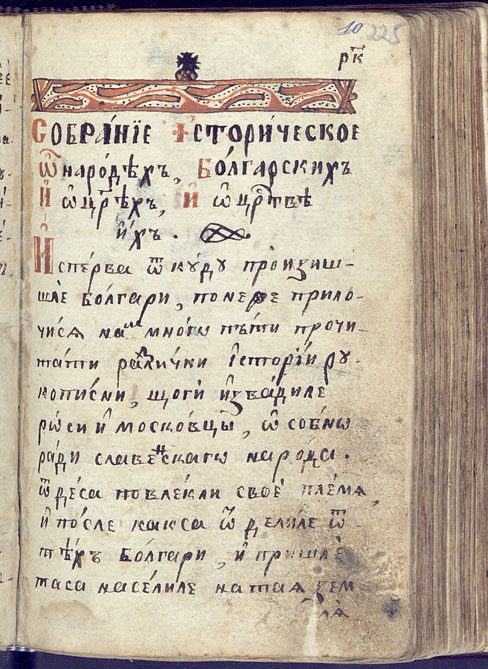 10 225
рк҃
Собра́нїе І҆стори́ческое
ѿ наро́дѣхъ, Бо́лгарскихъ
И҆ ѿ цр҃ѣхъ, И҆ ѿ цр҃твѣ
и҆́хъ .
И҆спе́рва ѿ кꙋ́дꙋ произиш-
шле бо́лгари, понеже прило-
чисѧ на мнѡгѡ пъти прочи-
тати разли́чки і҆сторїи рꙋ-
кописни, щоги и҆зва́диле
рꙋ́си и҆ московцы, ѿ собнѡ
ра́ди славе́нскагѡ наро́да .
ѿ деса повлекли своѐ пле́мѧ,
и҆ по́сле какса ѿ делиле ѿ
тѣ́хъ бо́лгари, и҆ пришле
таса насе́лиле на таѧ зем
лѧ